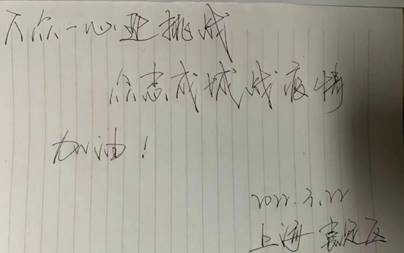 万众一心迎挑战
众志成城战疫情
加油！
2022.3.22
上海 嘉定区